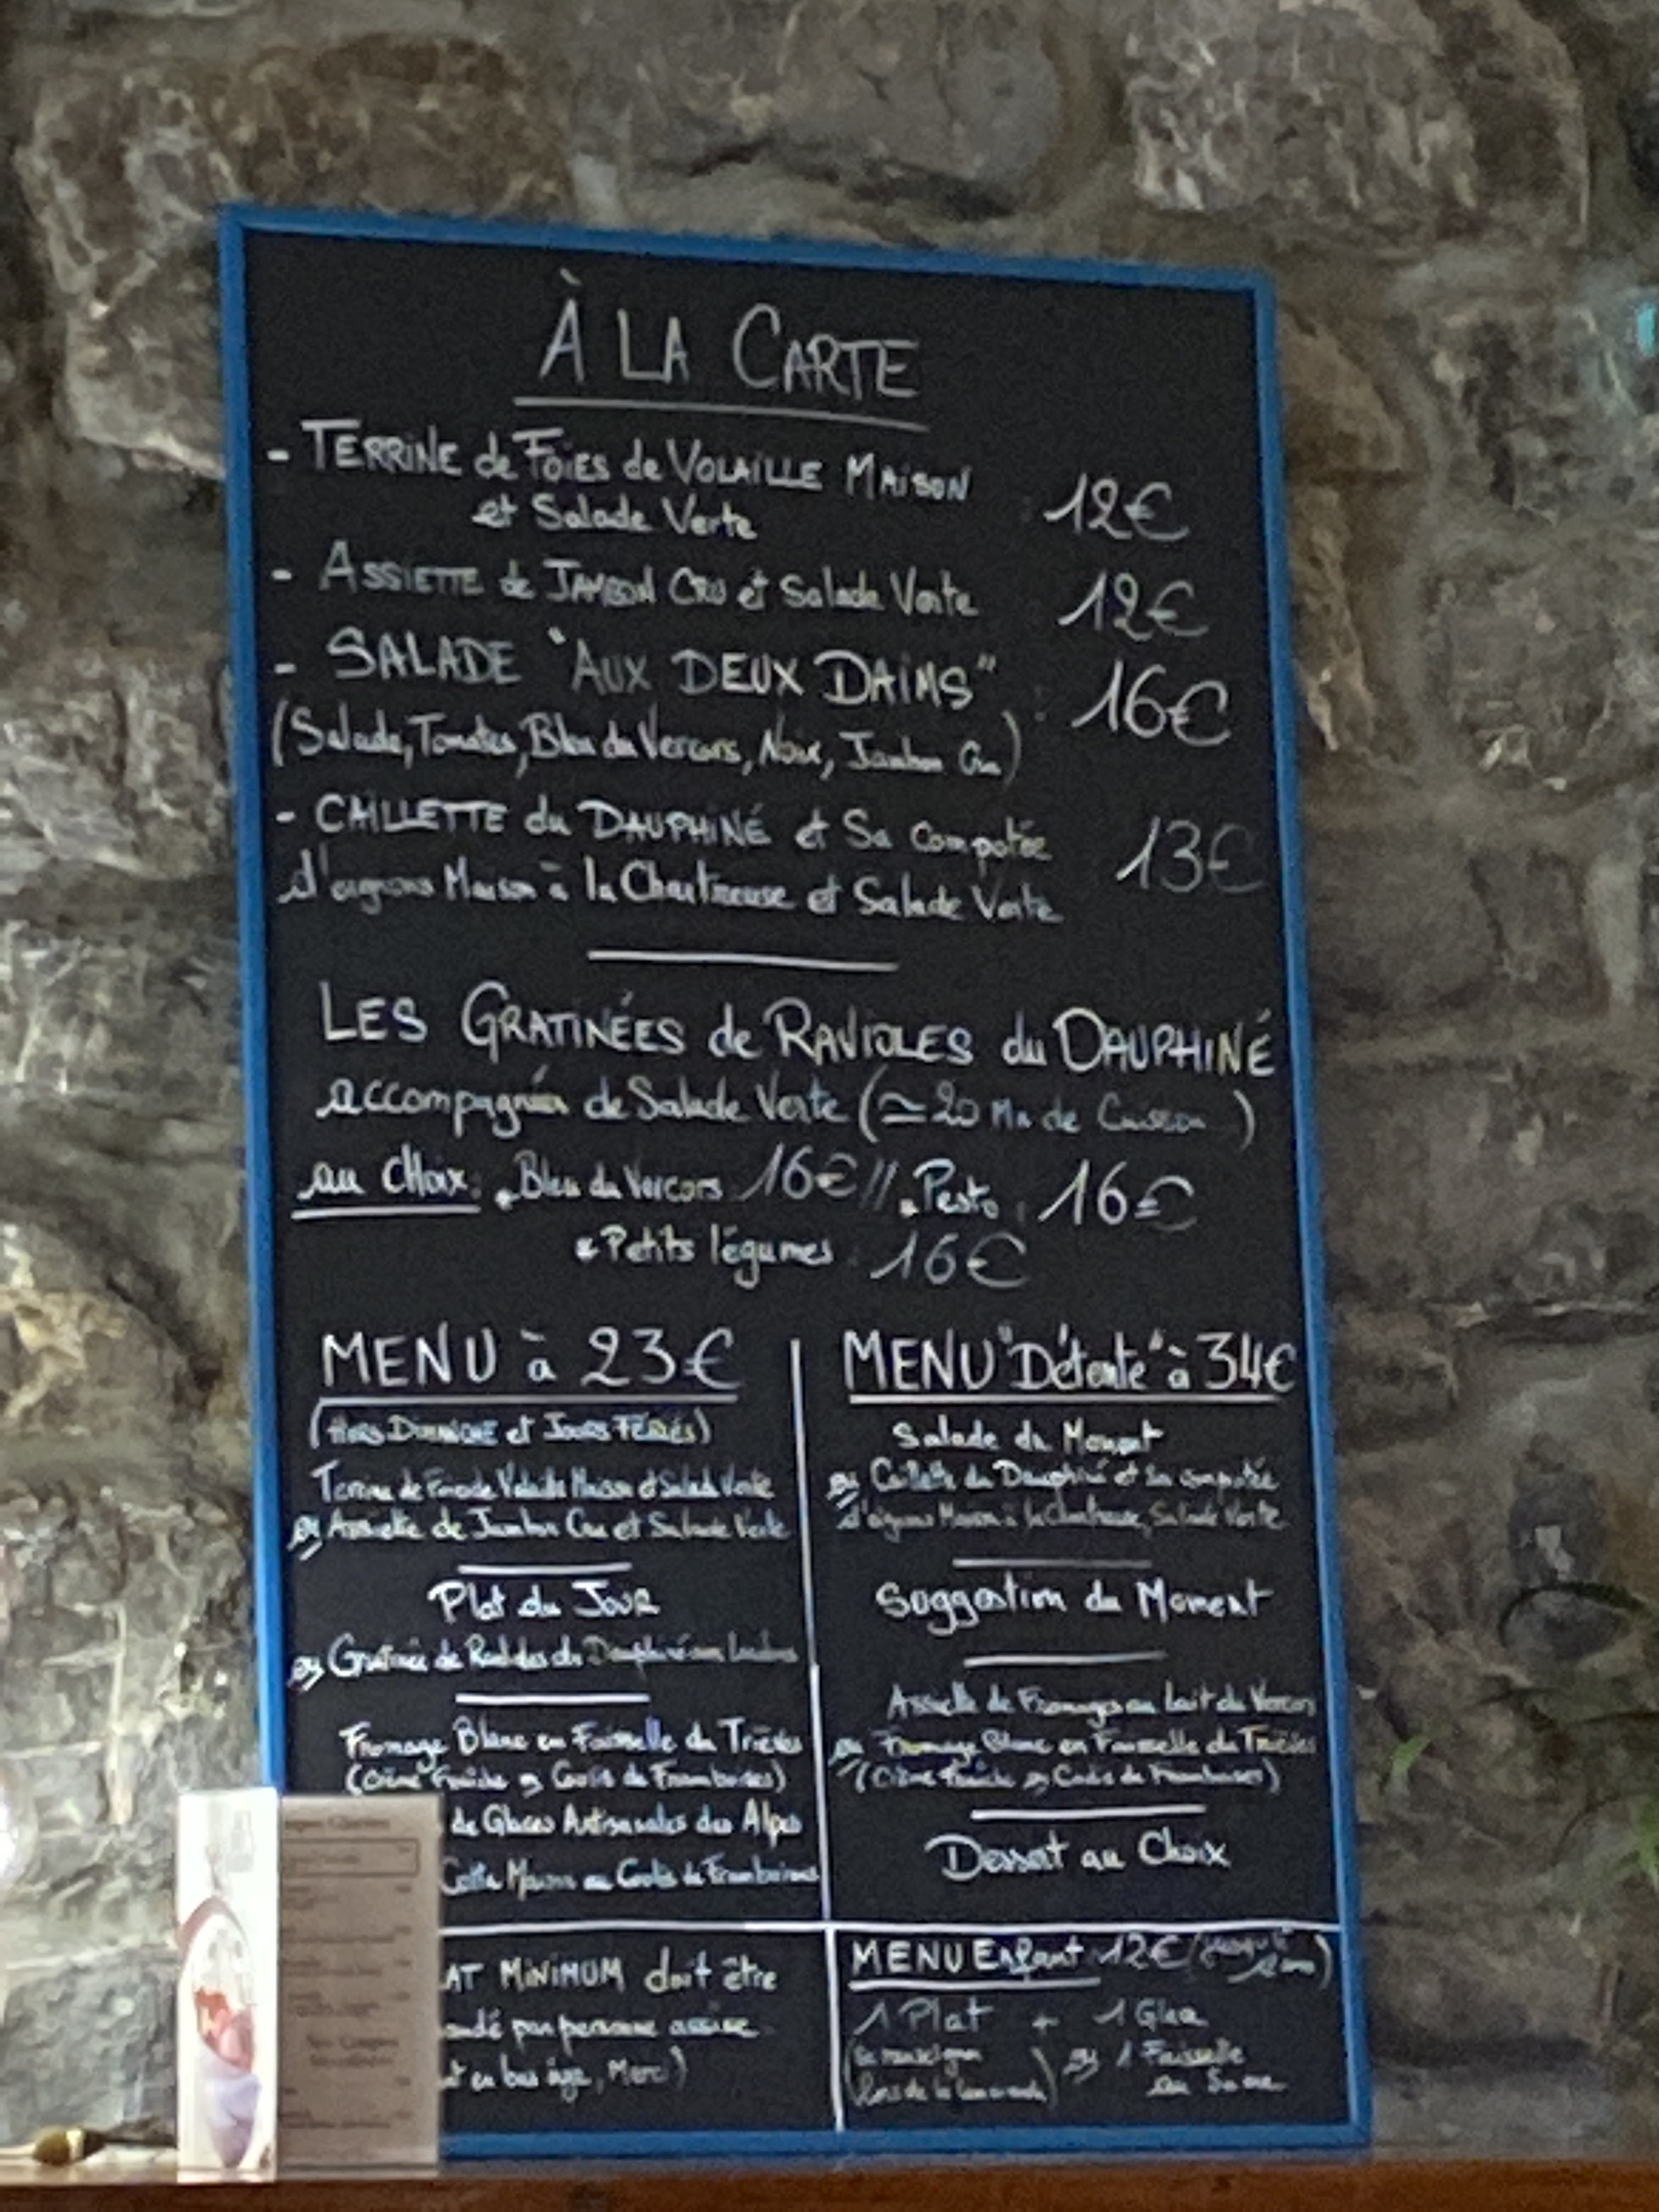 À LA CARTE
- TERRINE de FOIES de VOLAILLE MAISON
et Salade Verte : 12€
- ASSIETTE de JAMBON CRU et Salade Verte 12€
- SALADE "AUX DEUX DAIMS" : 16€
(Salade, Tomates, Bleu du Vercors, Noix, Jambon Cru)
- CAILLETTE du DAUPHINÉ et Sa Compotée 13€
d'oignons Maison à la Chartreuse et Salade Verte
LES GRATINÉES de RAVIOLES du DAUPHINÉ
accompagnées de Salade Verte (≃ 20 Mn de Cuisson )
au CHoix: Bleu du Vercors 16€ // Pesto : 16€
Petits légumes : 16€
MENU à 23€
(HORS DIMANCHE et JOURS FÉRIÉS)
Terrine de Foies de Volaille Maison et Salade Verte
ou Assiette de Jambon Cru et Salade Verte
Plat du JOUR
ou Gratinée de Ravioles du Dauphiné aux
Fromage Blanc en Faisselle du Trièves
(Crème Fraîche ou Coulis de Framboises)
de Glaces Artisanales des Alpes
Cotta Maison au Coulis de Framboises
MENU "Détente" à 34€
Salade du Moment
ou Caillette du Dauphiné et sa compotée
d'oignons Maison à la Chartreuse, Salade Verte
Suggestion du Moment
Assiette de Fromages au Lait du Vercors
ou Fromage Blanc en Faisselle du Trièves
(Crème Fraîche ou Coulis de Framboises)
Dessert au Choix
AT MINIMUM doit être
andé par personne assise
t en bas âge, Merci)
MENU Enfant 12€ (jusqu'à
1 Plat + 1 Glace
(se renseigner
lors de la commande) ou 1 Faisselle
au Sucre